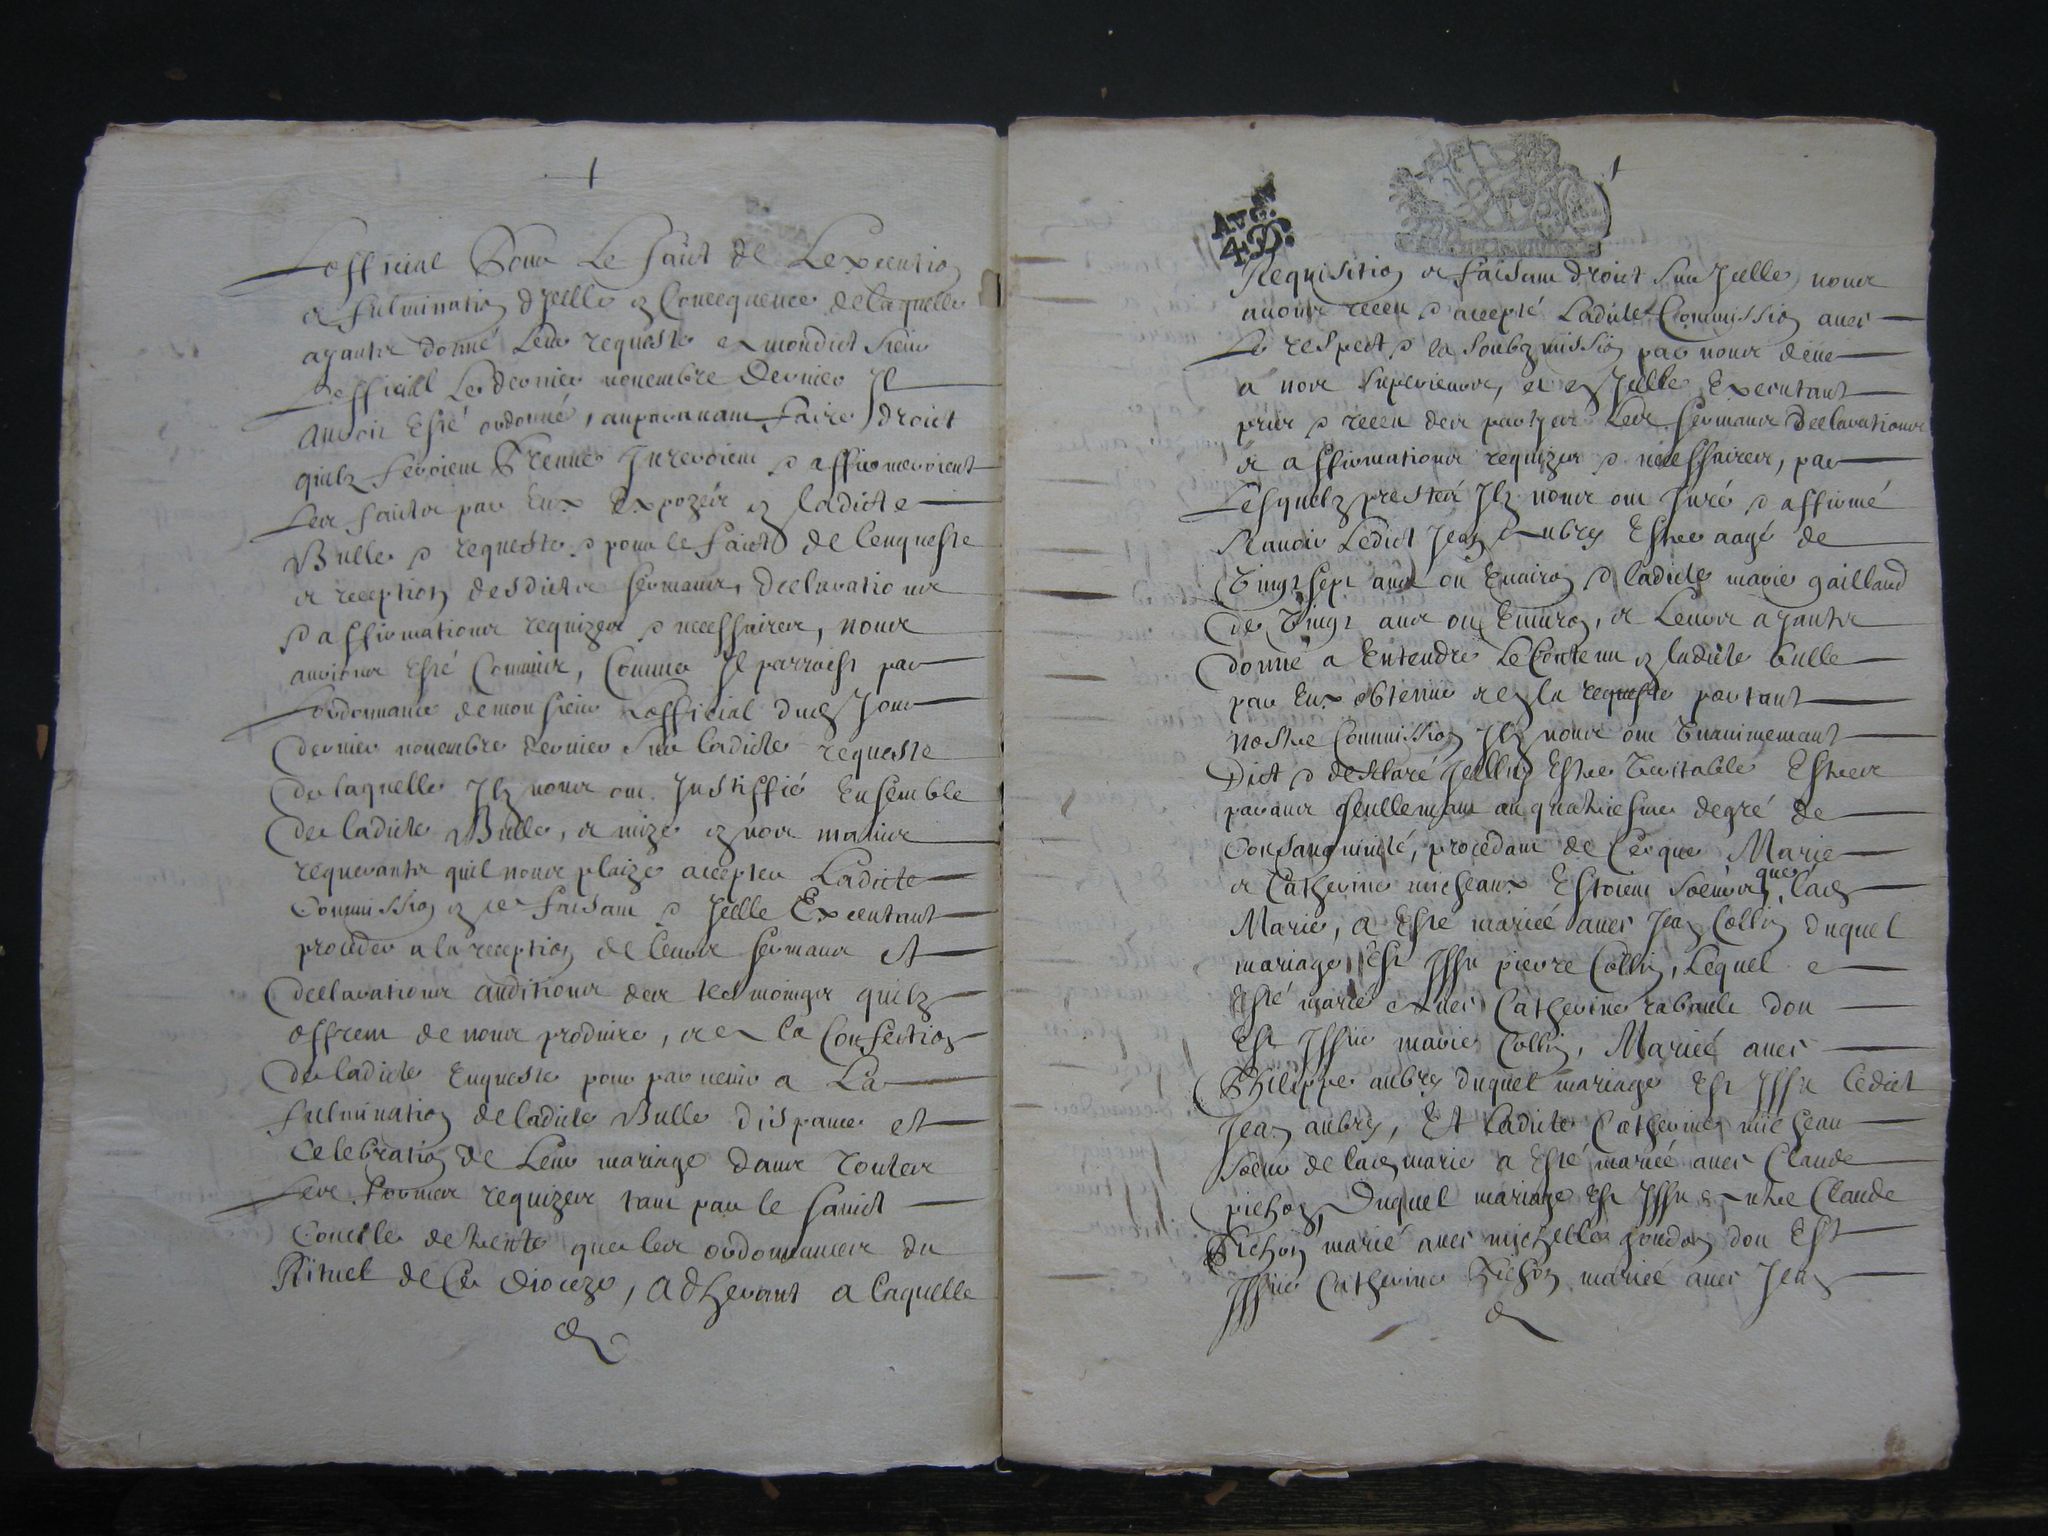 Lofficial Pour Le faict de Lexecution
et fulmination dycelle en Concequence de laquelle
ayants donné Leur requeste a mondict sieur
Lofficial Le dernier novembre dernier Il
auroit Esté ordonné, auparavant faire droict
quilz seroient Prenne Jureroient & affirmeroient
Les faicts par Eux Expozés en ladicte
Bulle & requeste & pour le faict de lenqueste
et reception desdicts sermants, declarations
& affirmations requizes & necessaires, nous
aurions Esté Commis, Comme Il parroist par
Lordonnance de monsieur Lofficial dud Jour
dernier novembre dernier sur ladicte requeste
de laquelle Ilz nous ont Justiffié Ensemble
de ladicte Bulle, et mize en nos mains
requerants quil nous plaize accepter Ladicte
Commission en ce faisant & Jcelle Executant
proceder a la reception de leurs sermans et
declarations auditions des tesmoings quilz
offrent de nous produire, et a la Confection
de ladicte Enqueste pour parvenir a La
fulmination de ladicte Bulle dispance et
Celebration de Leur mariage dans toutes
Les formes requizes tant par le sainct
Concile de trente que les ordonnances du
Rituel de Ce dioceze, adherant a laquelle
Avg.
4 D.
Requisition et faisant droict sur Jcelle nous
avons receu & accepté Ladicte Commission avec
Le respect & la soubzmission par nous deüe
a nos superieurs, et en Jcelle Executant
pris & receu des partyes Les sermans declarations
et affirmations requizes & necessaires, par
Lesquelz prestés Ilz nous ont Juré & affirmé
Scavoir Ledict Jean Aubry Estre aagé de
Vingt sept ans ou Environ & ladicte marie gaillard
de Vingt ans ou Environ, et Leurs ayants
donné a Entendre Le Contenu en ladicte bulle
par Eux obtenue et en la requeste portant
nostre Commission Ilz nous ont Unanimemant
Dict & desclaré Jcelluy Estre Veritable Estres
parans seullemant au quatriesme degré de
Consanguinité, procedant de Ce que Marie
et Catherine micheaux Estoient soeurs, que lad
Marie, a Esté mariée avec Jean Collin duquel
mariage Est Issu pierre Collin, Lequel a
Esté marié avec Catherine rabaule dou
Est Issue marie Collin, Mariée avec
Philippe aubry duquel mariage Est Issu ledict
Jean aubry, Et Ladicte Catherine micheau
soeur de lad marie a Esté mariée avec Claude
pichon, Duquel mariage Est Issu autre Claude
Pichon marié avec michelle jondon dou Est
Issue Catherine Pichon mariée avec Jean